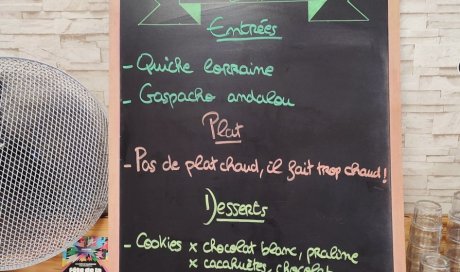 Entrées
- Quiche lorraine
- Gaspacho andalou
Plat
- Pas de plat chaud, il fait trop chaud!
Desserts
- Cookies x chocolat blanc, praline
x cacahuètes, chocolat